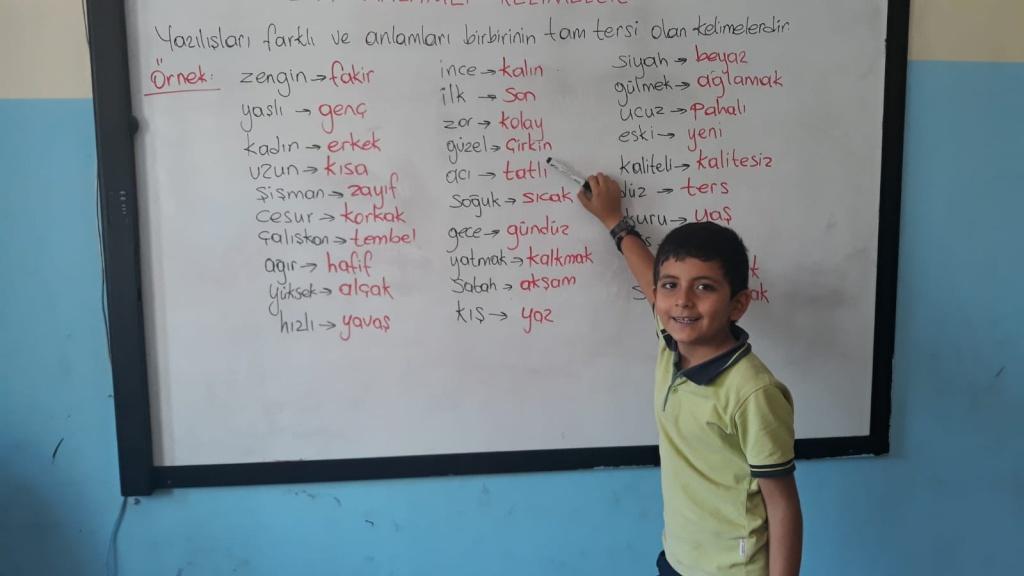 KELİMELER
Yazılışları farklı ve anlamları birbirinin tam tersi olan kelimelerdir.
Örnek:
zengin→fakir
yaşlı→genç
kadın→erkek
uzun→kısa
şişman→zayıf
cesur→korkak
çalışkan→tembel
ağır→hafif
yüksek→alçak
hızlı→yavaş
ince→kalın
ilk→son
zor→kolay
güzel→çirkin
acı→tatlı
soğuk→sıcak
gece→gündüz
yatmak→kalkmak
sabah→akşam
kış→yaz
siyah→beyaz
gülmek→ağlamak
ucuz→pahalı
eski→yeni
kaliteli→kalitesiz
düz→ters
kuru→yaş